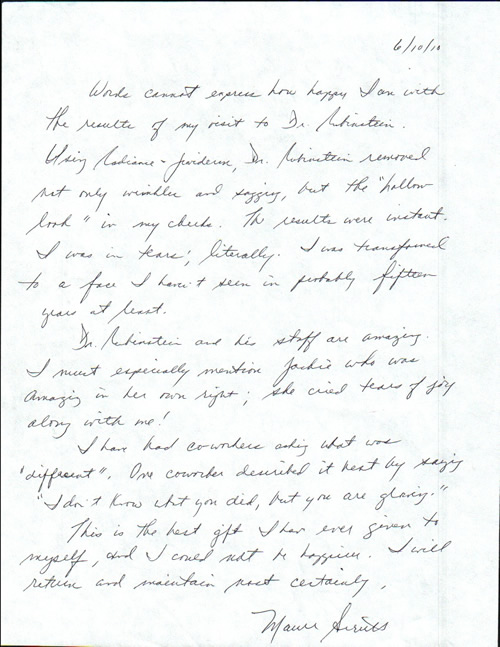 6/10/10
Words cannot express how happy I am with
the results of my visit to Dr. Rubinstein.
Using Radiance + Juviderm, Dr. Rubinstein removed
not only wrinkles and sagging, but the "hollow
look" in my cheeks. The results were instant.
I was in tears, literally. I was transformed
to a face I haven't seen in probably fifteen
years at least.
Dr. Rubinstein and his staff are amazing.
I must especially mention Jackie who was
amazing in her own right; she cried tears of joy
along with me!
I have had co-workers asking what was
"different". One coworker described it best by saying
"I don't know what you did, but you are glowing."
This is the best gift I have ever given to
myself, and I could not be happier. I will
return and maintain most certainly.